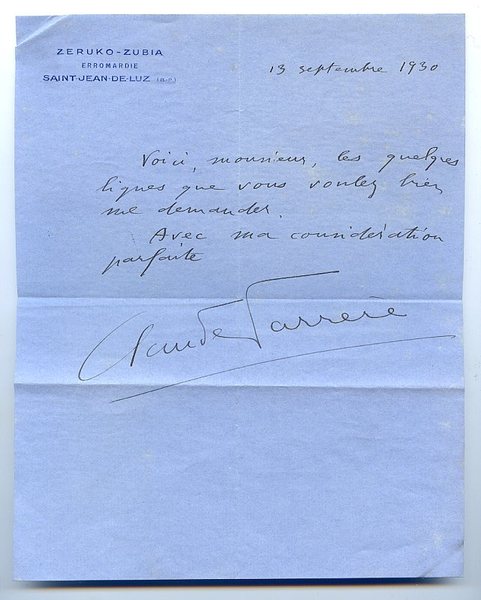 ZERUKO-ZUBIA
ERROMARDIE
SAINT-JEAN-DE-LUZ (B-P.)
13 septembre 1930
Voici, monsieur, les quelques
lignes que vous voulez bien
me demander.
Avec ma considération
parfaite
Claude Farrère